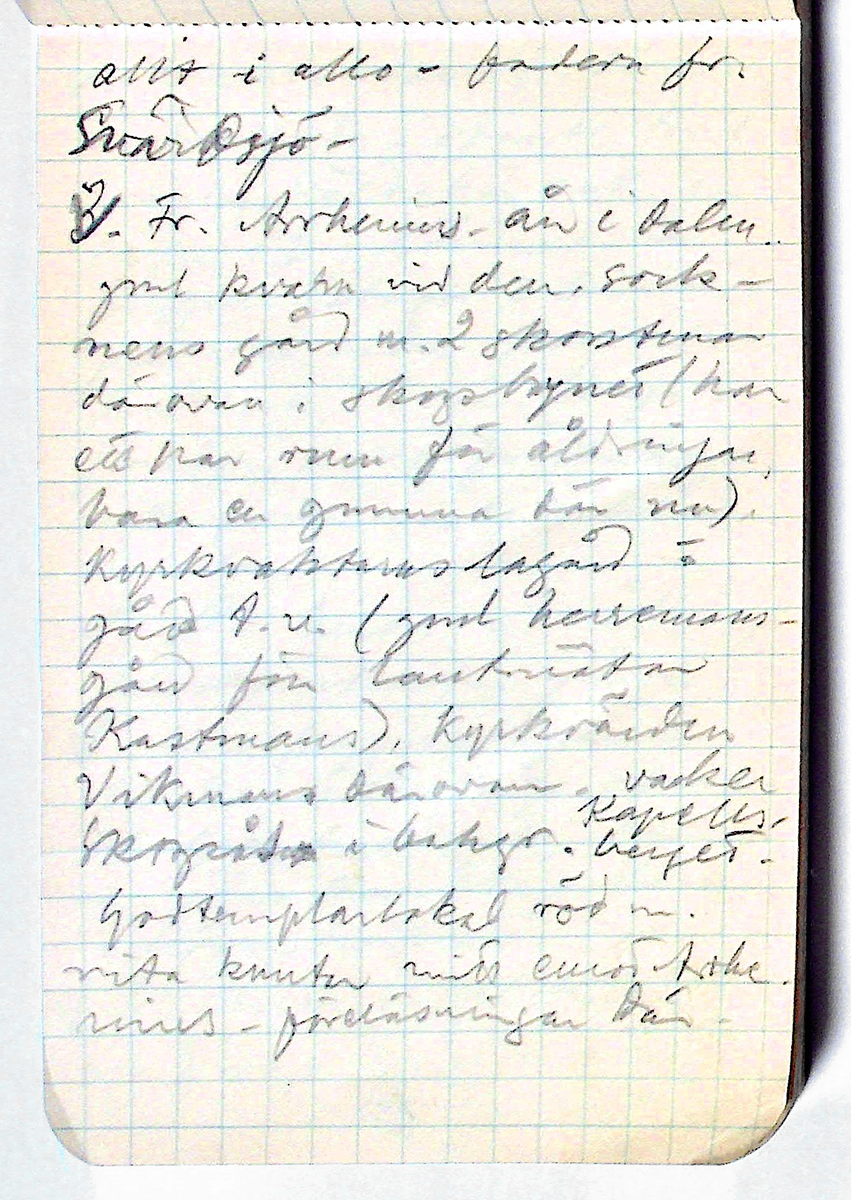 allt i allo - fadern fr.
Svärdsjö -
Fr. Arrhenius. ån i dalen.
gml kvarn vid den. Sock-
nens gård m. 2 skorstenar
därovan i skogsbrynet (har
ett par rum för åldringar,
bara en gumma där nu).
Kyrkvaktarens lagård o
gård t.v. (gml herremans-
gård för lantmätar
Kastmans), kyrkvärden
Vikmans därovan. vacker
Kapells-
i bakgr. berget.
Godtemplarlokal röd m.
vita knutar midt emot Arrhe
nius - föreläsningar där -